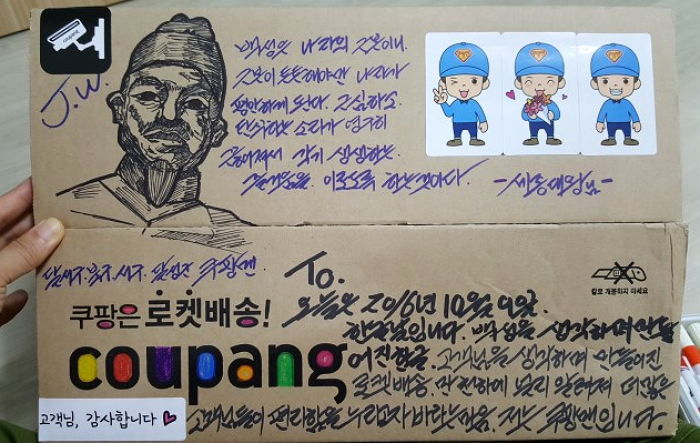 coupang
J.W.
백성은 나라의 근본이니
근본이 튼튼해야만 나라가
평안하게 된다. 근심하고
탄식하는 소리가 영구히
끊어져서 각기 생생하는
즐거움을 이루도록 하는 것이다.
-세종대왕님-
달서구. 북구. 서구. 달성군 쿠팡맨
To.
칼로 개봉하지 마세요
쿠팡은 로켓배송!
coupang
오늘은 2016년 10월 9일.
한글날입니다. 백성을 생각하며 만들
어진 한글. 고객님을 생각하며 만들어진
로켓배송. 만천하에 널리 알려져 더 많은
고객님, 감사합니다
고객님들이 편리함을 누리고자 바라는 마음. 저는 쿠팡맨입니다